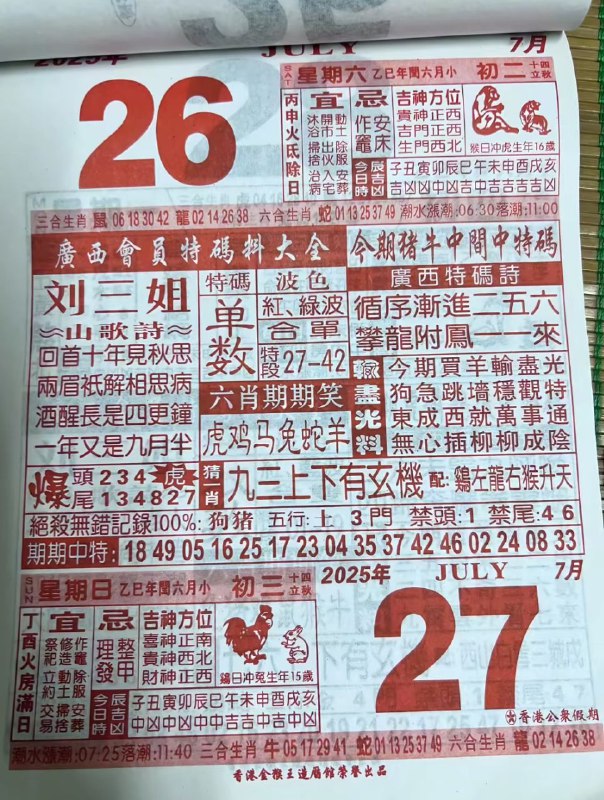 2025年 JULY 7月
26
SAT 星期六 乙巳年閏六月小 初二 十四立秋
丙申火氐除日
宜
沐浴 掃捨 治病
開市 出伙 入宅
動土 除服 安葬
忌
作竈 安床
吉神方位
貴神正西
吉門正西
生門西北
猴日冲虎生年16歲
今日時辰吉凶
子丑寅卯辰巳午未申酉戌亥
三合生肖 鼠 06 18 30 42 龍 02 14 26 38 六合生肖 蛇 01 13 25 37 49 潮水漲潮:06:30落潮:11:00
廣西會員特碼料大全
今期猪牛中間中特碼
刘三姐
山歌詩
回首十年見秋思
兩眉祇解相思病
酒醒長是四更鐘
一年又是九月半
特碼 波色
单数
紅、綠波
合單
特段27-42
六肖期期笑
虎鸡马兔蛇羊
廣西特碼詩
循序漸進二五六
攀龍附鳳一一來
盡光料
今期買羊輸盡光
狗急跳墻穩觀特
東成西就萬事通
無心插柳柳成陰
爆 頭234 虎
尾134827
猜一肖 九三上下有玄機 配:鷄左龍右猴升天
絕殺無錯記錄100%:狗猪 五行:土 3門 禁頭:1 禁尾:46
期期中特: 18 49 05 16 25 17 23 04 35 37 42 46 02 24 08 33
SUN 星期日 乙巳年閏六月小 初三 十四立秋
2025年 JULY 7月
27
丁酉火房滿日
宜
祭祀 立約 交易
修造 動土 掃捨
作竈 除服 安葬
忌
理發 整甲
吉神方位
喜神正南
貴神西北
財神正西
鷄日冲兔生年15歲
今日時辰吉凶
子丑寅卯辰巳午未申酉戌亥
香港公衆假期
潮水漲潮:07:25落潮:11:40 三合生肖 牛 05 17 29 41 蛇 01 13 25 37 49 六合生肖 龍 02 14 26 38
香港金猴王造曆館榮譽出品